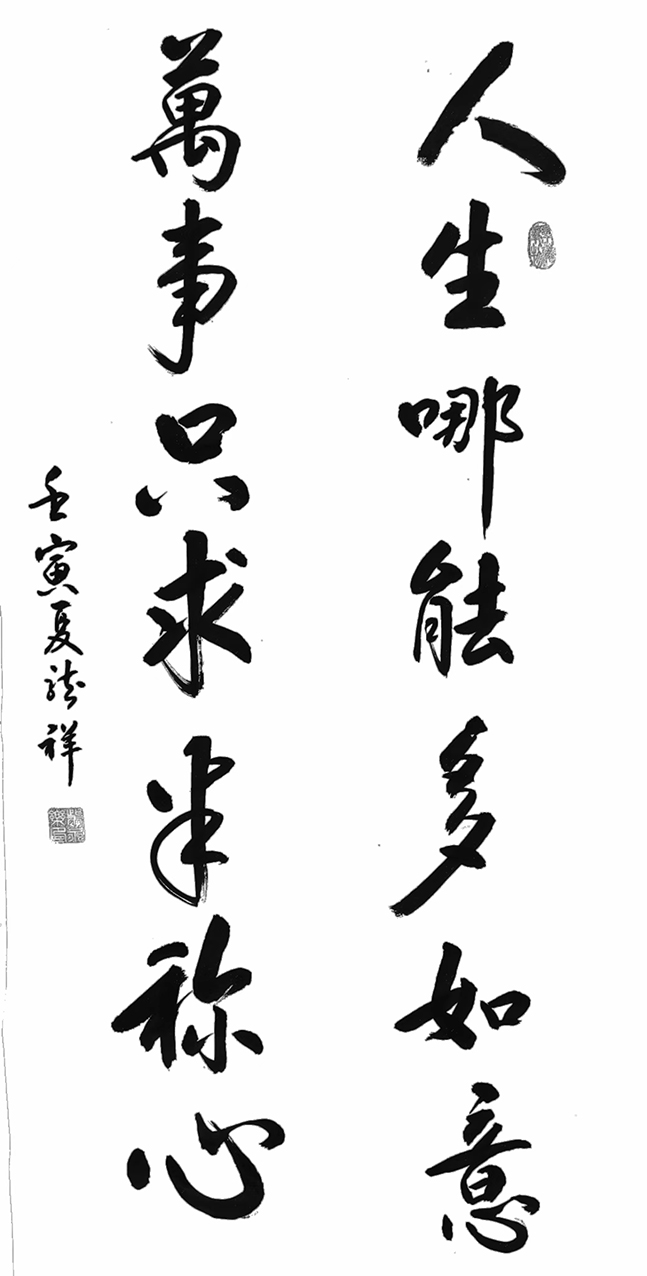 人生哪能多如意
萬事只求半称心
壬寅夏 祥